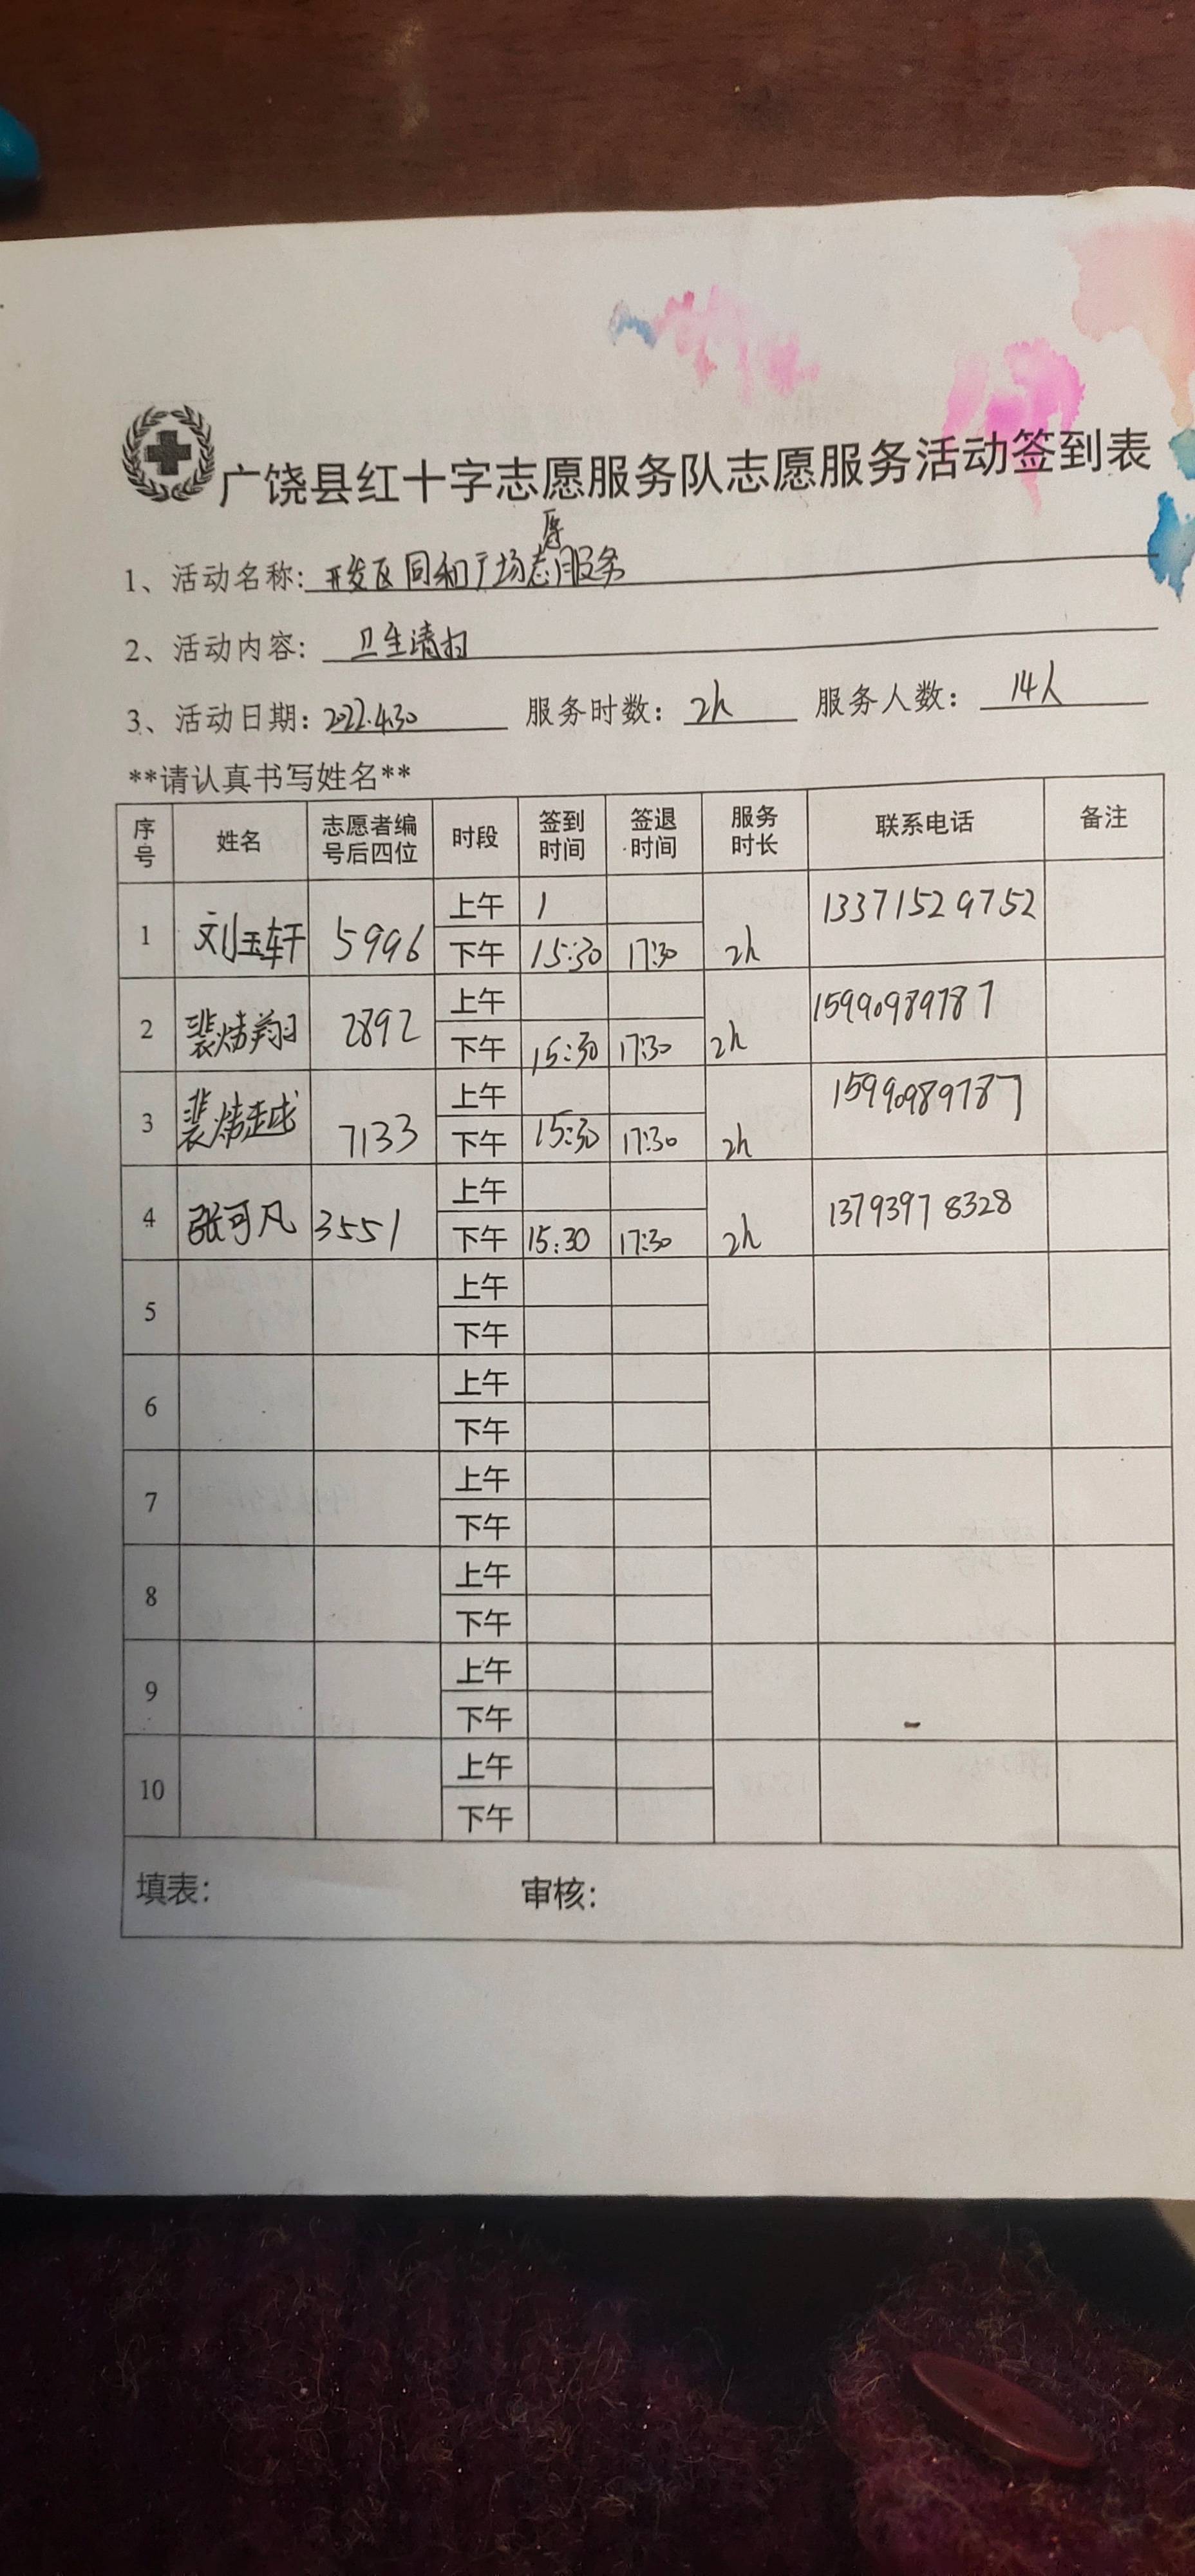 广饶县红十字志愿服务队志愿服务活动签到表
1、活动名称: 开发区同和广场志愿服务
2、活动内容: 卫生清扫
3、活动日期: 2022.4.30 服务时数: 2h 服务人数: 14人
**请认真书写姓名**
序号 姓名 志愿者编号后四位 时段 签到时间 签退时间 服务时长 联系电话 备注
1 刘玉轩 5996 上午 1 13371529752
下午 15:30 17:30 2h
2 裴炜翔 2892 上午 15990989787
下午 15:30 17:30 2h
3 裴炜越 7133 上午 15990989787
下午 15:30 17:30 2h
4 张可凡 3551 上午 13793978328
下午 15:30 17:30 2h
5 上午
下午
6 上午
下午
7 上午
下午
8 上午
下午
9 上午
下午
10 上午
下午
填表: 审核: